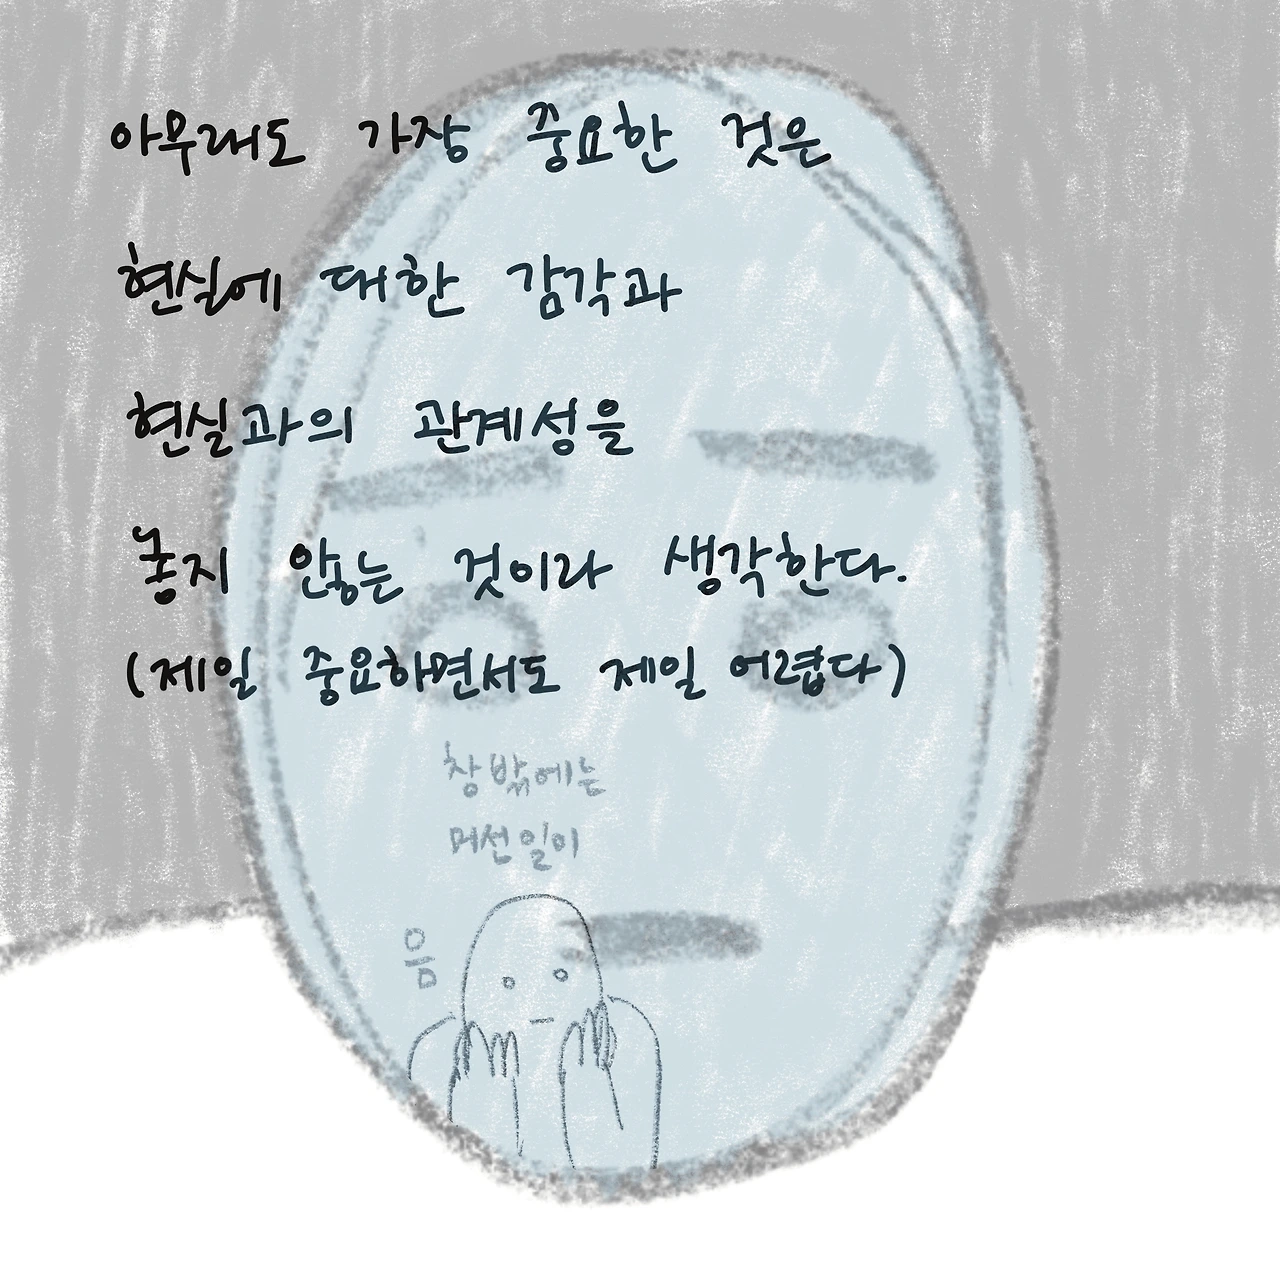 아무래도 가장 중요한 것은
현실에 대한 감각과
현실과의 관계성을
놓지 않는 것이라 생각한다.
(제일 중요하면서도 제일 어렵다)
창밖에는
머선일이
음